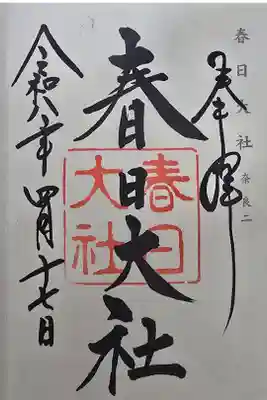 春日大社 奈良二
奉拝
春日大社
春日
大社
令和八年四月十七日